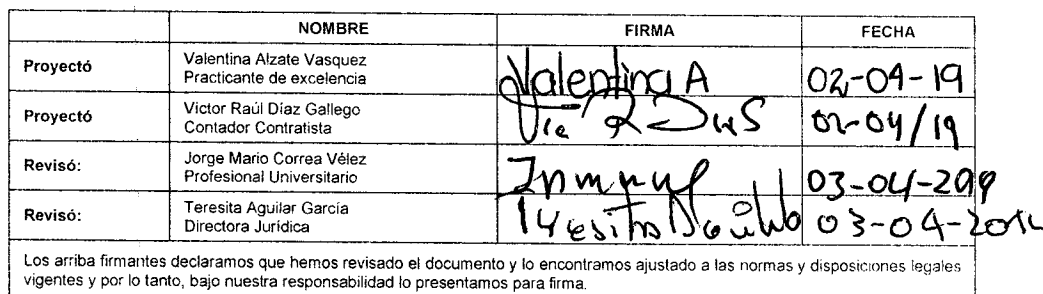 NOMBRE FIRMA FECHA
Proyectó Valentina Alzate Vasquez
Practicante de excelencia Valentina A 02-04-19
Proyectó Victor Raúl Díaz Gallego
Contador Contratista 02-04/19
Revisó: Jorge Mario Correa Vélez
Profesional Universitario 03-04-
Revisó: Teresita Aguilar García
Directora Jurídica Teresita 03-04-
Los arriba firmantes declaramos que hemos revisado el documento y lo encontramos ajustado a las normas y disposiciones legales
vigentes y por lo tanto, bajo nuestra responsabilidad lo presentamos para firma.